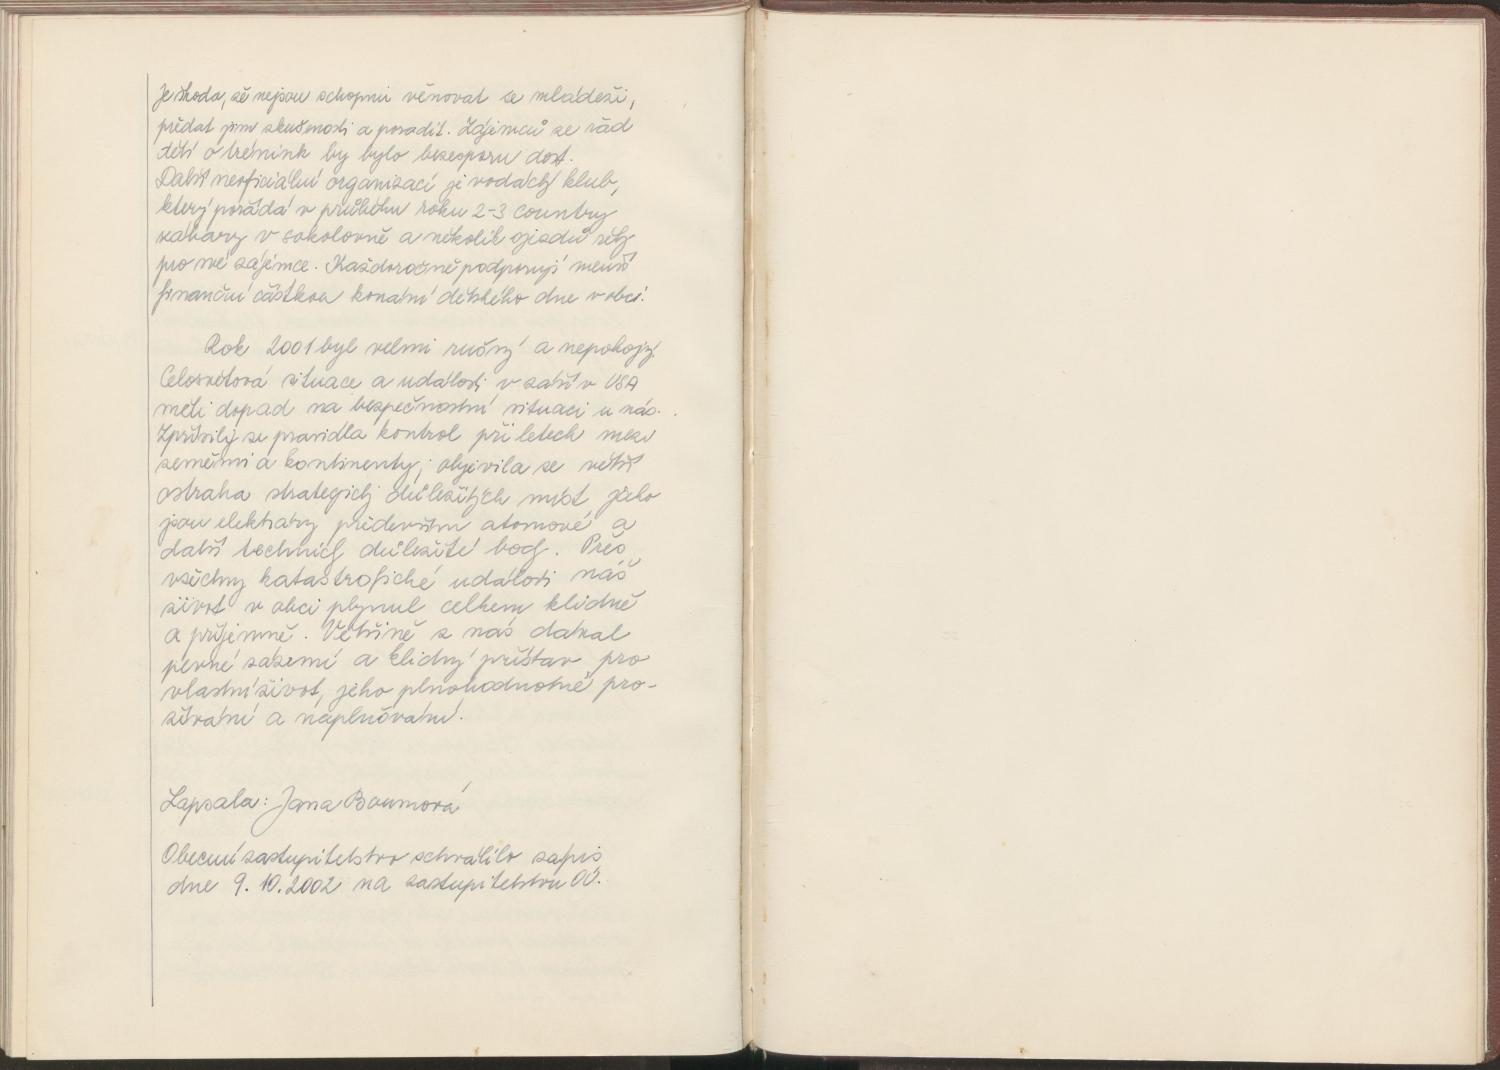 Je škoda, že nejsou schopni věnovat se mládeži,
předat jim zkušenosti a poradit. Zájemců ze řad
dětí o trénink by bylo bezesporu dost.
Další neoficiální organizací je vodácký klub,
který pořádá v průběhu roku 2-3 country
zábavy v sokolovně a několik sjezdů řeky
pro své zájemce. Každoročně podporují menší
finanční částkou konání dětského dne v obci.
Rok 2001 byl velmi rušný a nepokojný.
Celosvětová situace a události v září v USA
měli dopad na bezpečnostní situaci u nás.
Zpřísnily se pravidla kontrol při letech mezi
zeměmi a kontinenty, objevila se větší
ostraha strategicky důležitých míst, jako
jsou elektrárny především atomové a
další technicky důležité body. Přes
všechny katastrofické události náš
život v obci plynul celkem klidně
a příjemně. Většině z nás dával
pevné zázemí a klidný přístav pro
vlastní život, jeho plnohodnotné pro-
žívání a naplňování.
Zapsala: Jana Baumová
Obecní zastupitelstvo schválilo zápis
dne 9. 10. 2002 na zastupitelstvu OÚ.